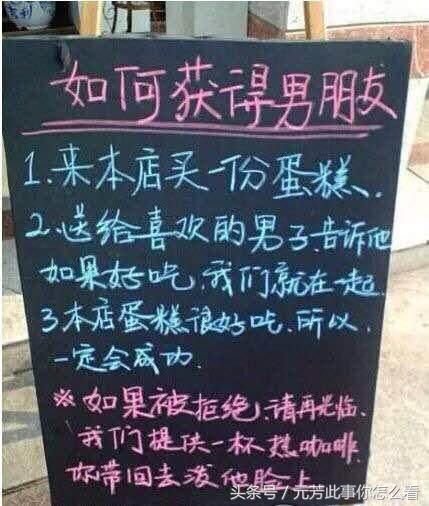 如何获得男朋友
1.来本店买一份蛋糕.
2.送给喜欢的男子.告诉他
如果好吃.我们就在一起.
3.本店蛋糕很好吃.所以.
一定会成功.
※如果被拒绝.请再光临.
我们提供一杯热咖啡
你带回去泼他脸上
头条号/元芳此事你怎么看